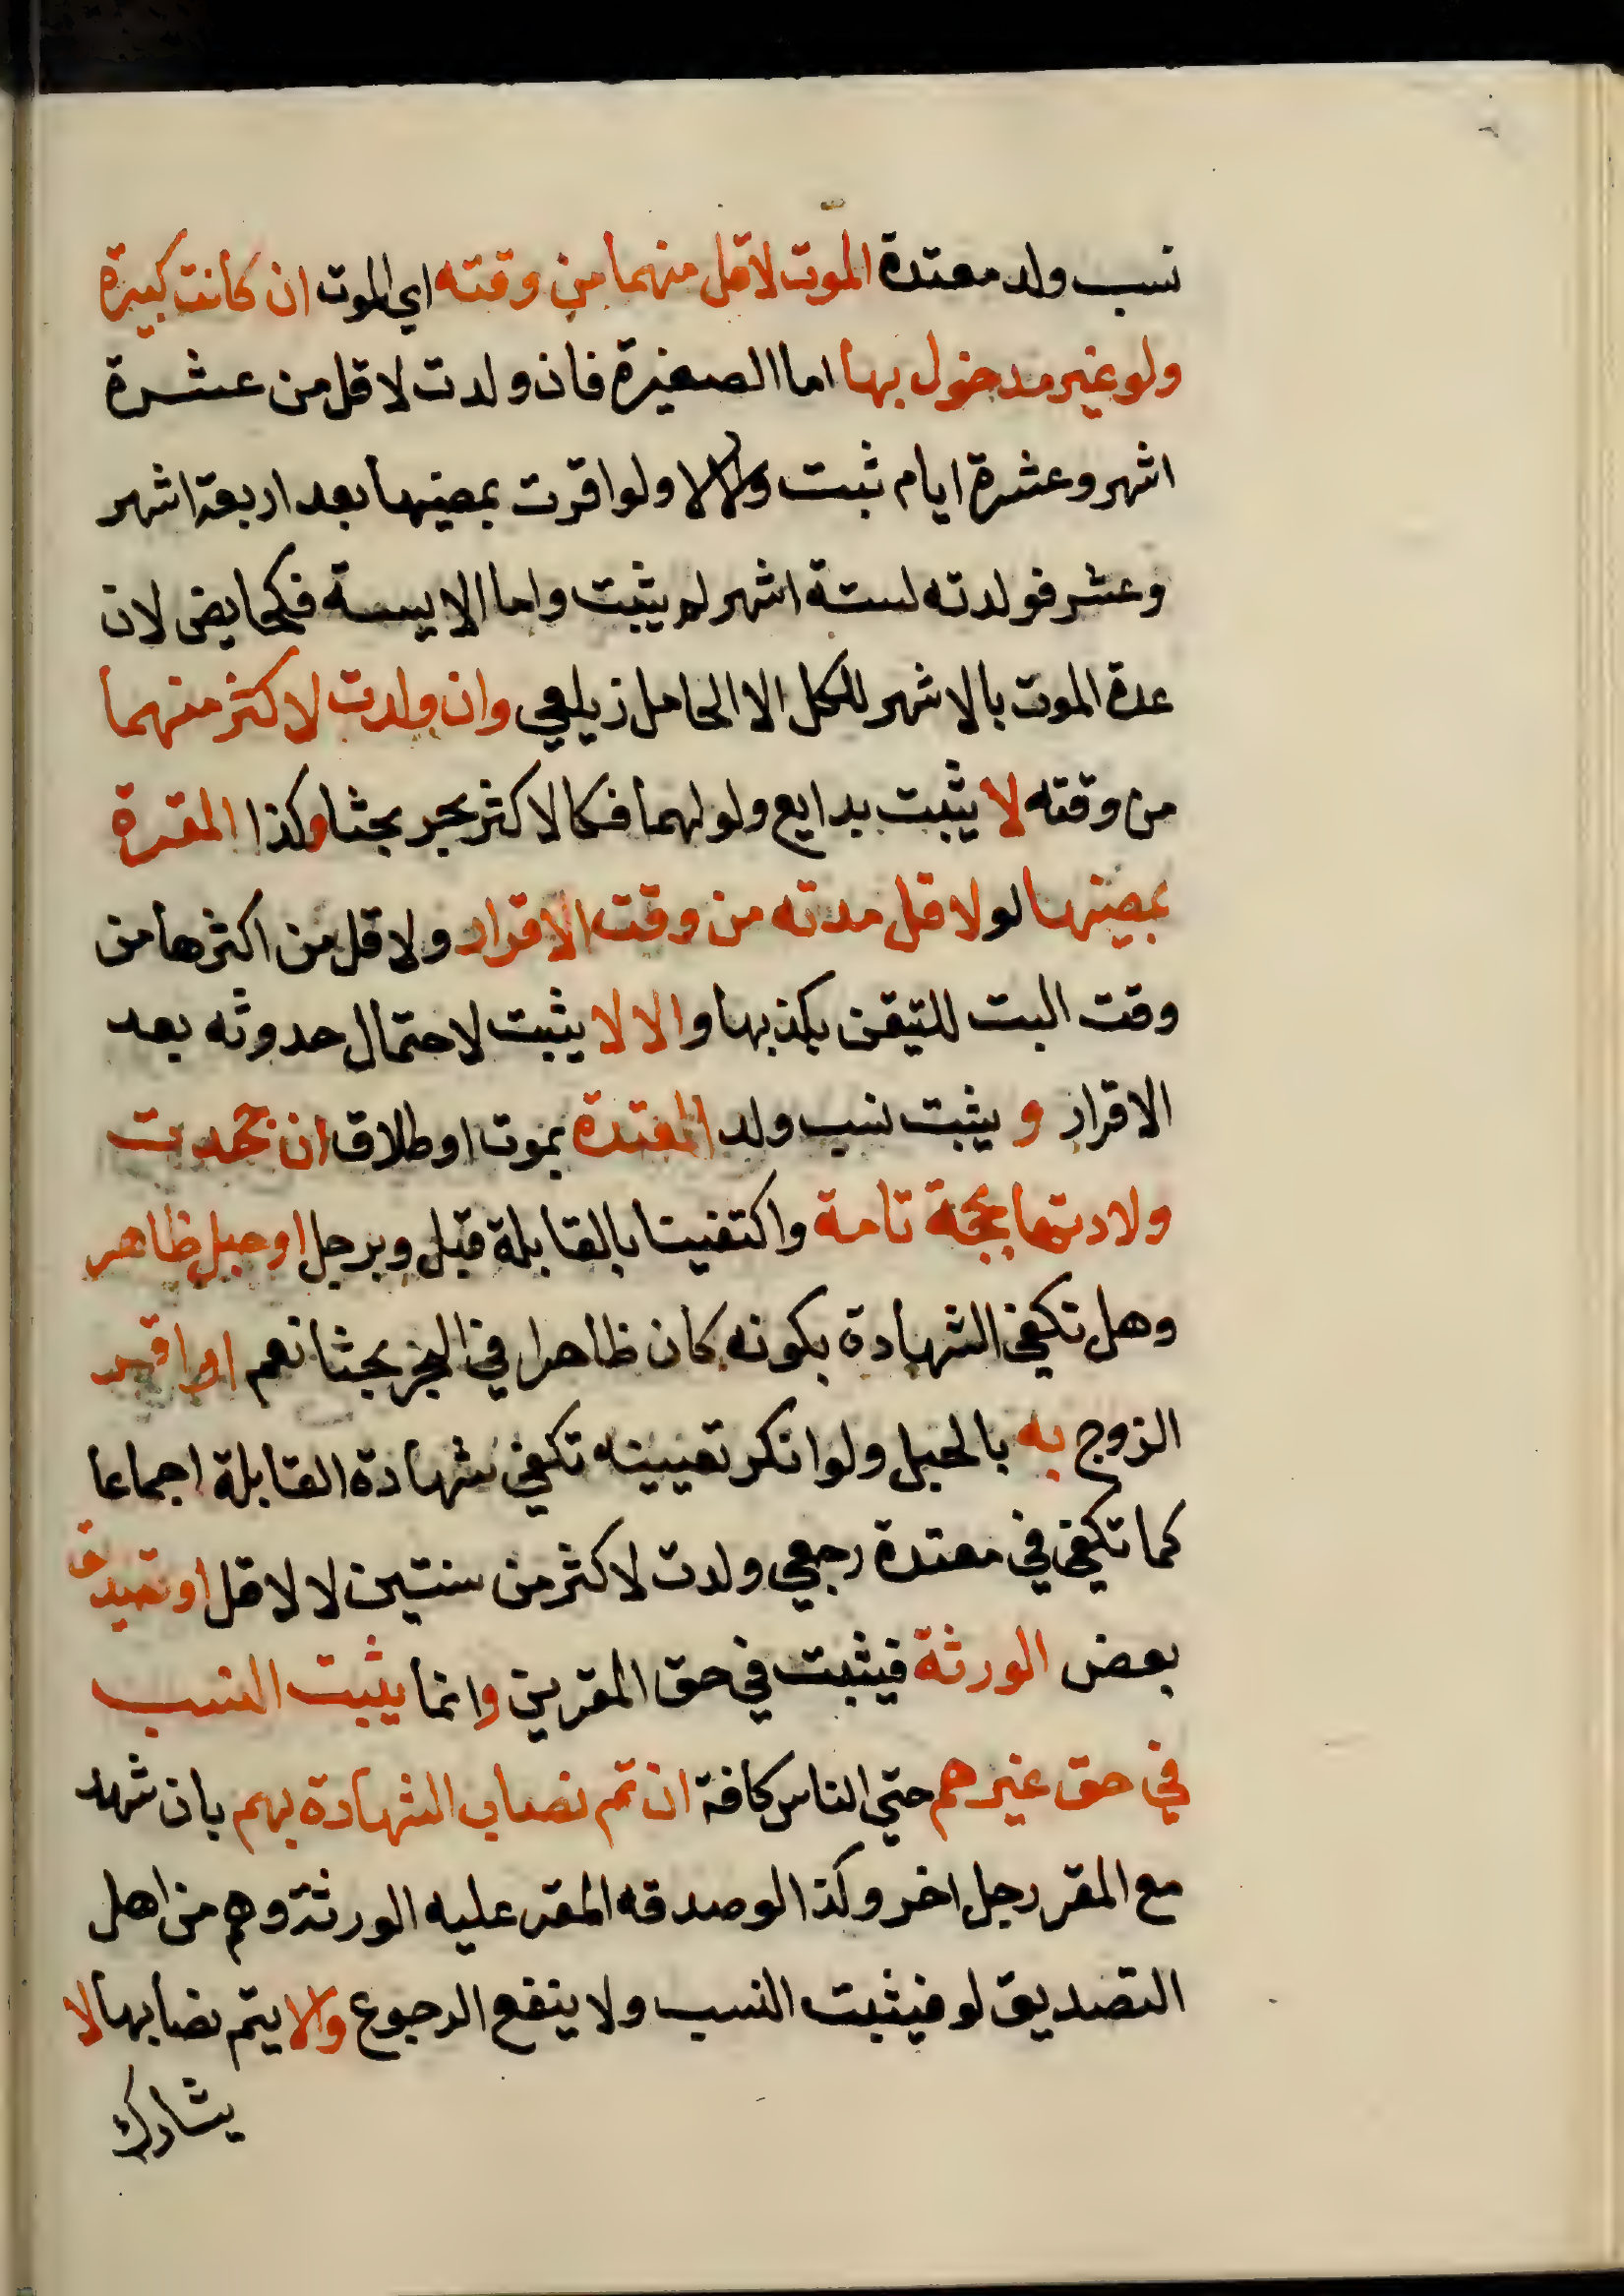 نسب ولد معتدة الموت لاقل منهما من وقته اي الموت ان كانت كبيرة
ولو غير مدخول بها اما الصغيرة فان ولدت لاقل من عشرة
اشهر وعشرة ايام ثبت والا لا ولو اقرت بمضيها بعد اربعة اشهر
وعشر فولدته لستة اشهر لم يثبت واما الايسة فكحايض لان
عدة الموت بالاشهر للكل الا الحامل زيلعي وان ولدت لاكثر منهما
من وقته لا يثبت بدايع ولو لهما فكالاكثر بحر بحثا وكذا المقرة
بمضيها لو لاقل مدته من وقت الاقرار ولاقل من اكثرها من
وقت البت للتيقن بكذبها والا لا يثبت لاحتمال حدوثه بعد
الاقرار و يثبت نسب ولد المعتدة بموت او طلاق ان جحدت
ولادتها بحجة تامة واكتفينا بالقابلة قيل وبرجل او حبل ظاهر
وهل تكفي الشهادة بكونه كان ظاهرا في البحر بحثا نعم او اقر
الزوج به بالحبل ولو انكر تعيينه تكفي شهادة القابلة اجماعا
كما تكفي في معتدة رجعي ولدت لاكثر من سنتين لا لاقل او تصديق
بعض الورثة فيثبت في حق المقرين وانما يثبت النسب
في حق غيرهم حتي الناس كافة ان تم نصاب الشهادة بهم بان شهد
مع المقر رجل اخر وكذا لو صدقه المقر عليه الورثة وهم من اهل
التصديق لو فيثبت النسب ولا ينفع الرجوع والا يتم نصابها لا
يشارك